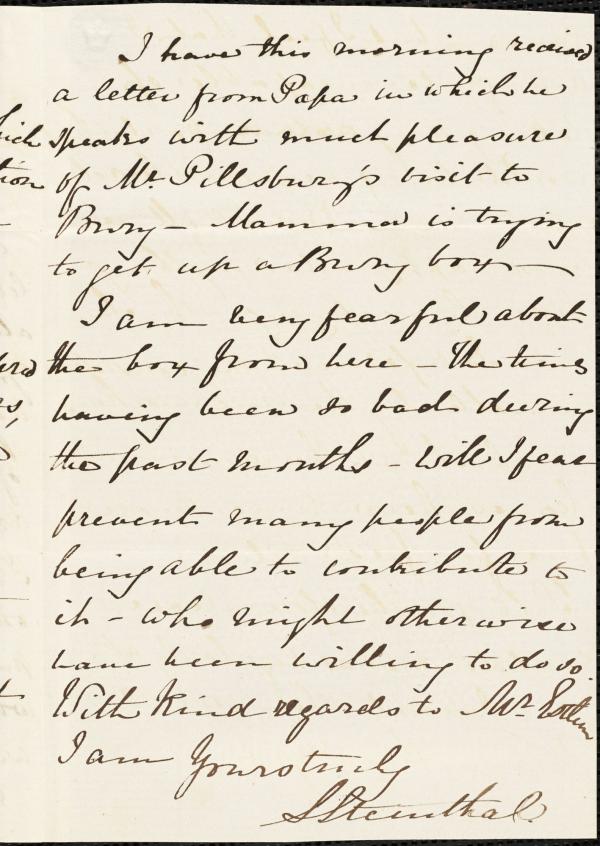 I have this morning received
a letter from Papa in which he
speaks with much pleasure
of Mr. Pillsbury's visit to
Bury — Mamma is trying
to get up a Bury box —
I am very fearful about
the box from here — The times
having been so bad during
the past months — will I fear
prevent many people from
being able to contribute to
it — who might otherwise
have been willing to do so.
With kind regards to Mr. Estlin
I am Yours truly
S Steinthal.